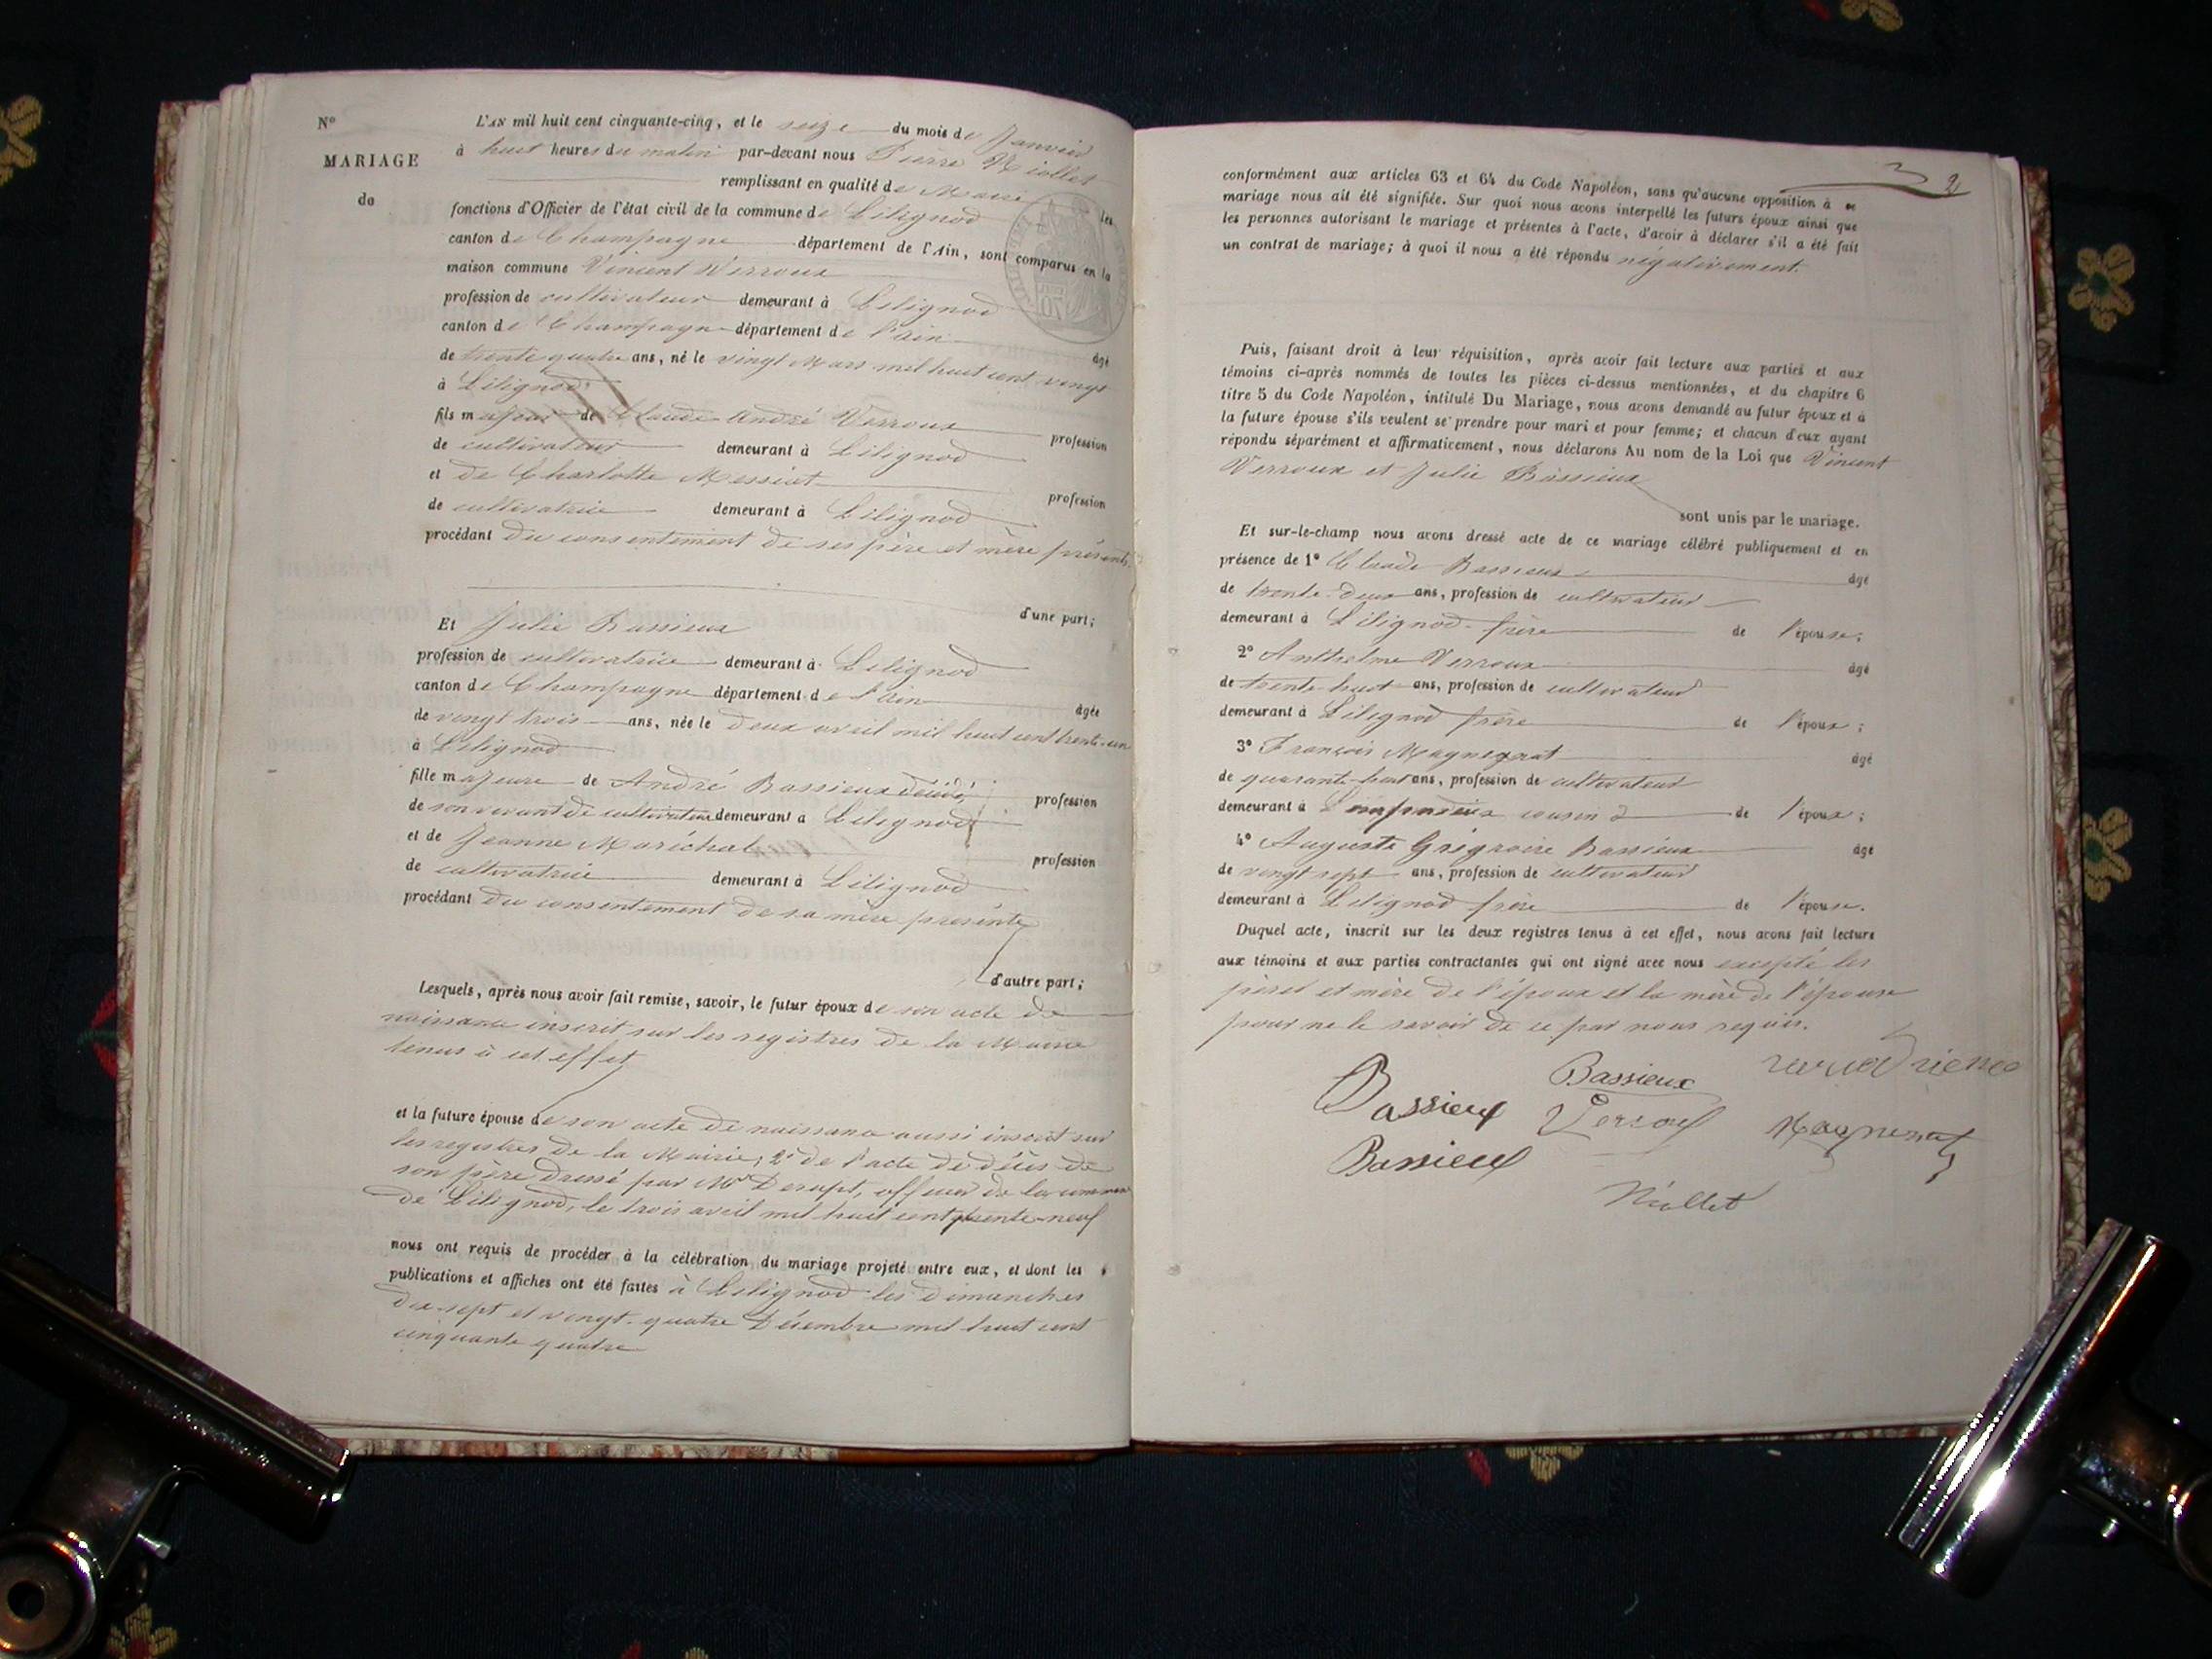 N°
MARIAGE
de
L'AN mil huit cent cinquante-cinq, et le seize du mois de Janvier
à huit heures du matin par-devant nous Pierre Niollet
remplissant en qualité de Maire les
fonctions d'Officier de l'état civil de la commune de Lilignod
canton de Champagne département de l'Ain, sont comparus en la
maison commune Vincent Verroux
profession de cultivateur demeurant à Lilignod
canton de Champagne département de l'ain âgé
de trente quatre ans, né le vingt Mars mil huit cent vingt
à Lilignod
fils majeur de Claude André Verroux profession
de cultivateur demeurant à Lilignod
et de Charlotte Messiat profession
de cultivatrice demeurant à Lilignod
procédant du consentement de ses père et mère présents
d'une part;
Et Julie Bassieux
profession de cultivatrice demeurant à Lilignod
canton de Champagne département de l'ain âgée
de vingt trois ans, née le deux avril mil huit cent trente-un
à Lilignod
fille majeure de André Bassieux décédé, profession
de son vivant de cultivateur demeurant à Lilignod
et de Jeanne Maréchal profession
de cultivatrice demeurant à Lilignod
procédant du consentement de sa mère présente
d'autre part;
Lesquels, après nous avoir fait remise, savoir, le futur époux de son acte de
naissance inscrit sur les registres de la Mairie
tenus à cet effet
et la future épouse de son acte de naissance aussi inscrit sur
les registres de la Mairie; 2° de l'acte de décès de
son père dressé par Mr officier de la commune
de Lilignod, le trois avril mil huit cent trente-neuf
nous ont requis de procéder à la célébration du mariage projeté entre eux, et dont les
publications et affiches ont été faites à Lilignod les dimanches
dix-sept et vingt-quatre Décembre mil huit cent
cinquante quatre
2
conformément aux articles 63 et 64 du Code Napoléon, sans qu'aucune opposition à ce
mariage nous ait été signifiée. Sur quoi nous avons interpellé les futurs époux ainsi que
les personnes autorisant le mariage et présentes à l'acte, d'avoir à déclarer s'il a été fait
un contrat de mariage; à quoi il nous a été répondu négativement.
Puis, faisant droit à leur réquisition, après avoir fait lecture aux parties et aux
témoins ci-après nommés de toutes les pièces ci-dessus mentionnées, et du chapitre 6
titre 5 du Code Napoléon, intitulé Du Mariage, nous avons demandé au futur époux et à
la future épouse s'ils veulent se prendre pour mari et pour femme; et chacun d'eux ayant
répondu séparément et affirmativement, nous déclarons Au nom de la Loi que Vincent
Verroux et Julie Bassieux
sont unis par le mariage.
Et sur-le-champ nous avons dressé acte de ce mariage célébré publiquement et en
présence de 1° Claude Bassieux âgé
de trente-deux ans, profession de cultivateur
demeurant à Lilignod frère de l'épouse;
2° Anthelme Verroux âgé
de trente-huit ans, profession de cultivateur
demeurant à Lilignod frère de l'époux;
3° François Magnenat âgé
de quarante-huit ans, profession de cultivateur
demeurant à cousin de l'époux;
4° Auguste Grégroire Bassieux âgé
de vingt sept ans, profession de cultivateur
demeurant à Lilignod frère de l'épouse.
Duquel acte, inscrit sur les deux registres tenus à cet effet, nous avons fait lecture
aux témoins et aux parties contractantes qui ont signé avec nous excepté les
pères et mère de l'époux et la mère de l'épouse
pour ne le savoir de ce par nous requis.
Bassieux
Bassieux Verroux Magnenat
Bassieux
Niollet